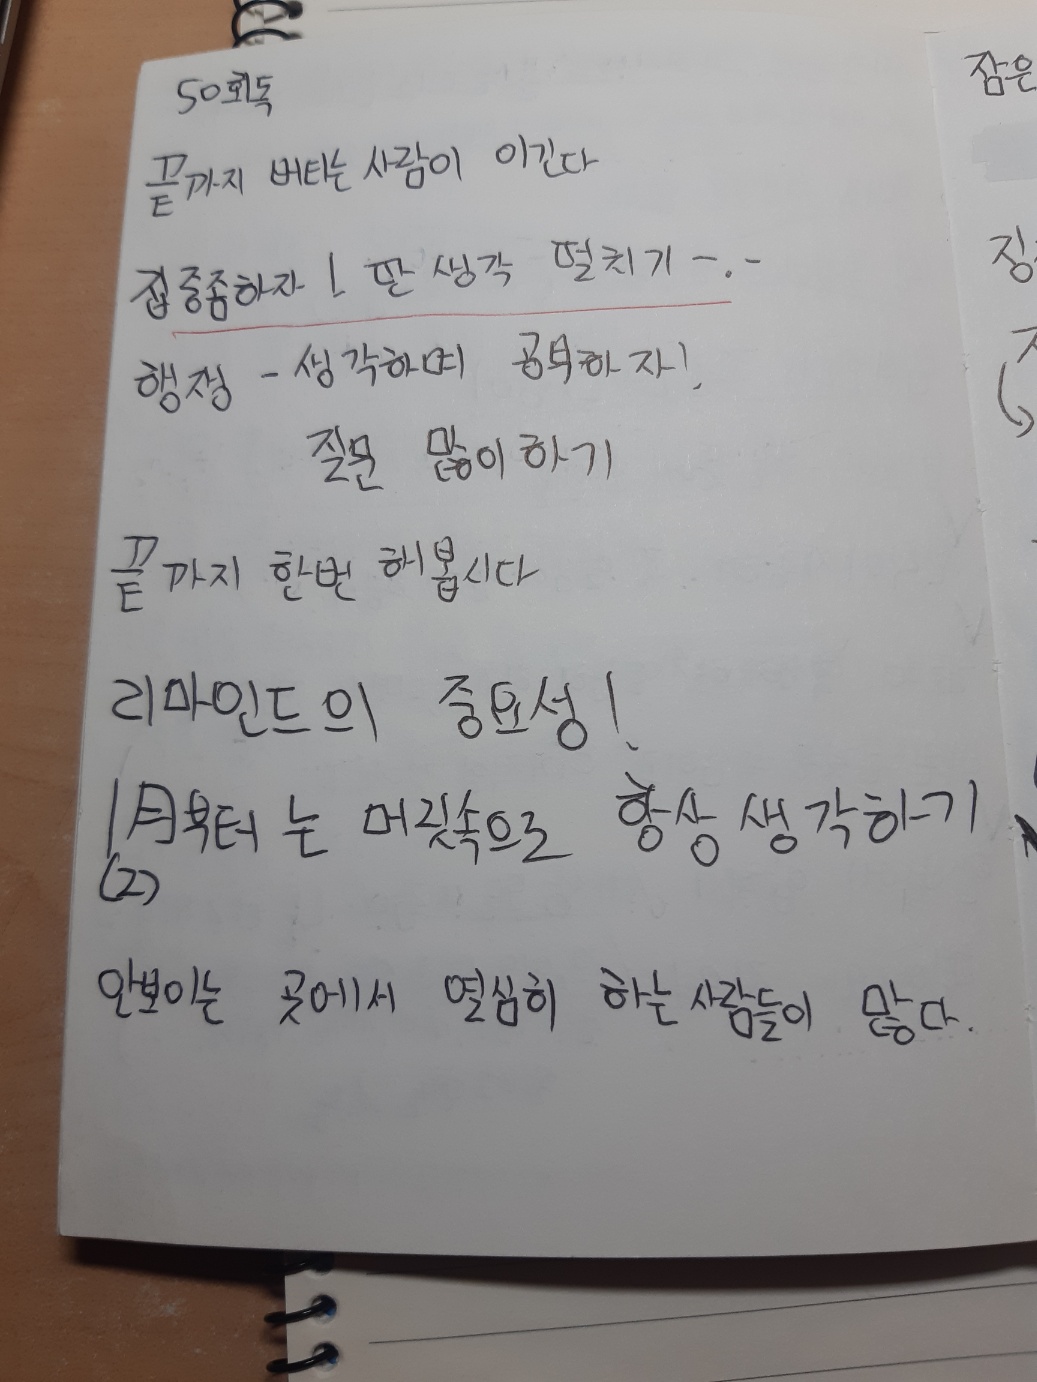 50회독
끝까지 버티는 사람이 이긴다
집중좀하자! 딴 생각 떨치기 -.-
행정 - 생각하며 공부하자!
질문 많이하기
끝까지 한번 해봅시다
리마인드의 중요성!
1月부터는 머릿속으로 항상 생각하기
(2)
안보이는 곳에서 열심히 하는 사람들이 많다.
잠은